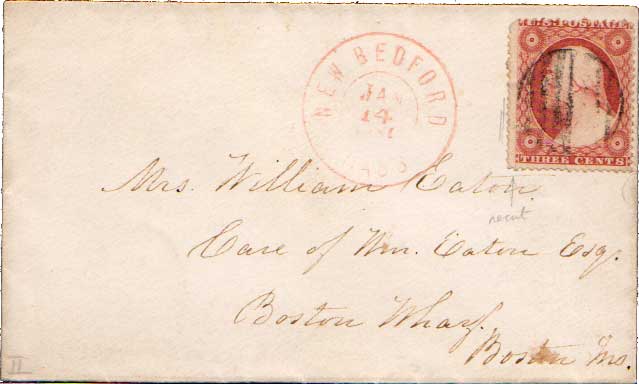 U.S. POSTAGE
THREE CENTS
NEW BEDFORD
JAN
14
MASS
Mrs. William Eaton
recut
Care of Wm. Eaton Esq.
Boston Wharf.
Boston Ms.
II